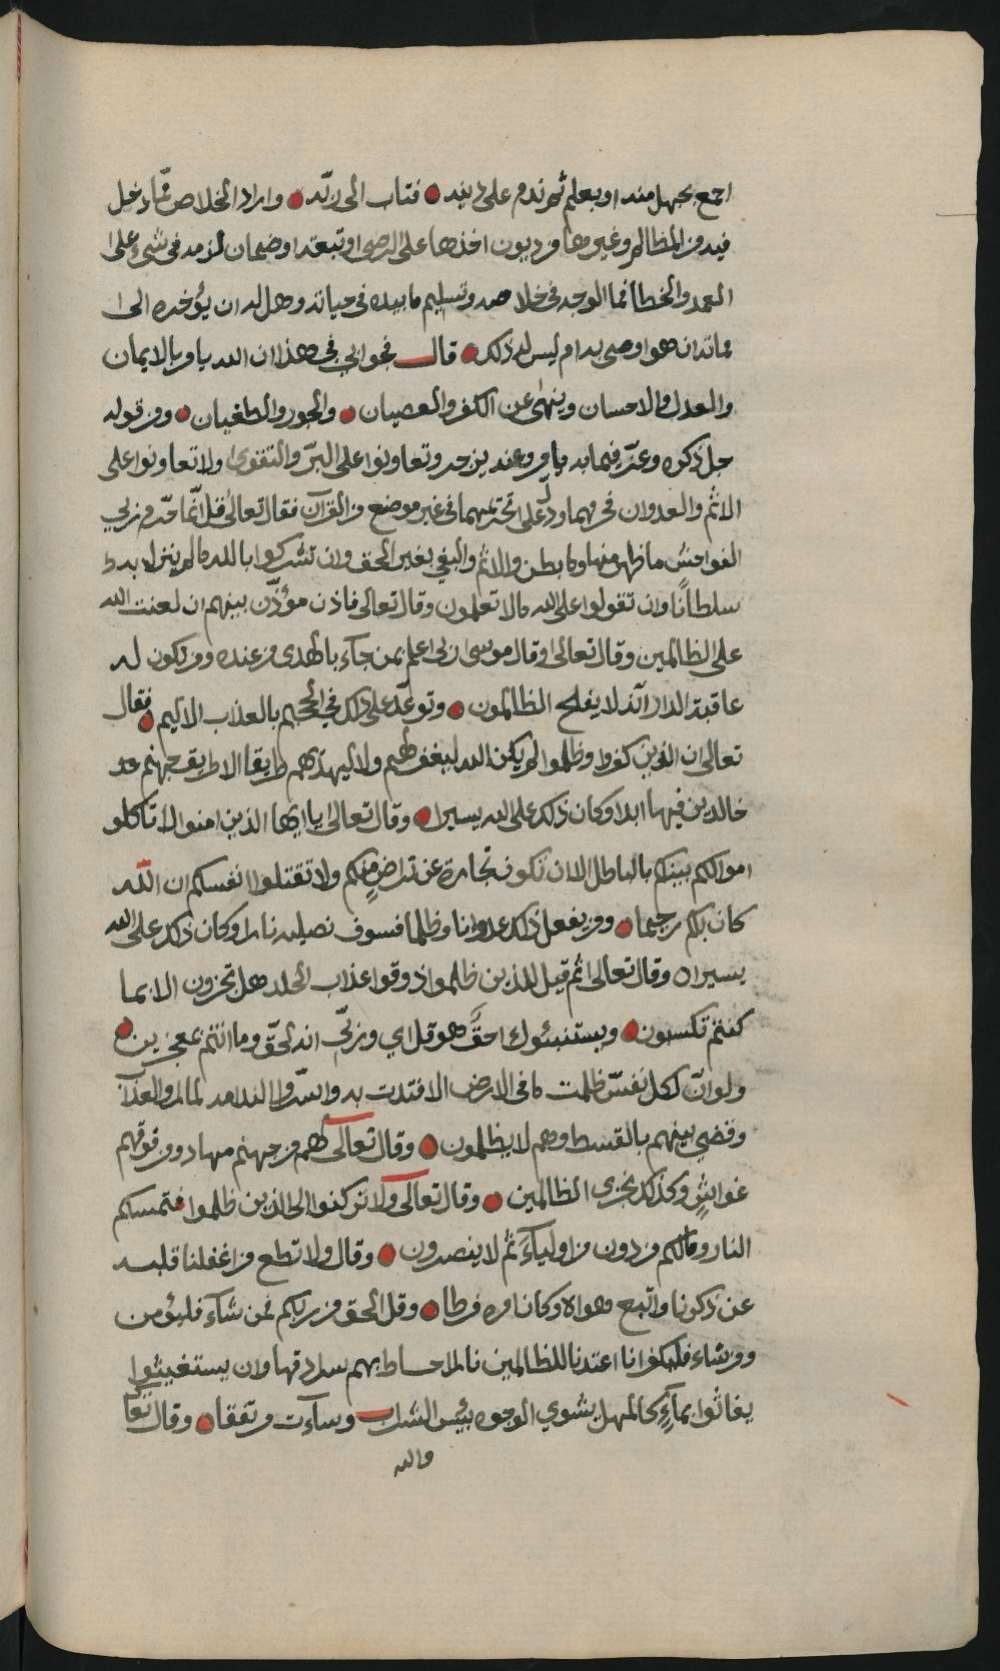 اجمع بجهل منه او بعلم ثم ندم على ذنبه فتاب الى ربّه واراد الخلاص ممّا دخل
فيه من المظالم وغيرها من ديون اخذها على الرضى او تبعة او ضمان لزمه في شيء على
العمد والخطأ فما الوجه في خلاصه وتسليم ما بيده في حياته وهل له ان يؤخره الى
مماته ان هو اوصى به ام ليس له ذلك قال فجوابي في هذا ان الله يامر بالايمان
والعدل والاحسان وينهى عن الكفر والعصيان والجور والطغيان ومن قوله
جل ذكره وعزّ فيما به يامر وعنه يزجر وتعاونوا على البرّ والتقوى ولا تعاونوا على
الاثم والعدوان فحرمهما ودلّ على تحريمهما في غير موضع من القرآن فقال تعالى قل انّما حرّم ربي
الفواحش ما ظهر منها وما بطن والاثم والبغي بغير الحق وان تشركوا بالله ما لم ينزل به
سلطانًا وان تقولوا على الله ما لا تعلمون وقال تعالى فاذن مؤذّن بينهم ان لعنت الله
على الظالمين وقال تعالى وقال موسى ربى اعلم بمن جآء بالهدى من عنده ومن تكون له
عاقبة الدار انّه لا يفلح الظالمون وتوعّد على ذلك في الجحيم بالعذاب الاليم فقال
تعالى ان الذين كفروا وظلموا لم يكن الله ليغفر لهم ولا ليهديهم طريقا الا طريق جهنم
خالدين فيها ابدا وكان ذلك على الله يسيرا وقال تعالى يا ايها الذين امنوا لا تاكلو
اموالكم بينكم بالباطل الا ان تكون تجارة عن تراضٍ منكم ولا تقتلوا انفسكم ان الله
كان بكم رحيما ومن يفعل ذلك عدوانا وظلما فسوف نصليه نارا وكان ذلك على الله
يسيرا وقال تعالى ثم قيل للذين ظلموا ذوقوا عذاب الخلد هل تجزون الا بما
كنتم تكسبون ويستنبئونك احقّ هو قل اي وربّي انه لحقّ وما انتم بمعجزين
ولو انّ لكل نفس ظلمت ما في الارض لافتدت به واسّروا الندامه لما راوا العذاب
وقضي بينهم بالقسط وهم لا يظلمون وقال تعالى لهم من جهنم مهاد ومن فوقهم
غواشٍ وكذلك نجزى الظالمين وقال تعالى ولا تركنوا الى الذين ظلموا فتمسكم
النار وما لكم من دون من اوليآءَ ثم لا ينصرون وقال ولا تطع من اغفلنا قلبه
عن ذكرنا واتّبع هواه وكان امره فرطا وقل الحق من ربكم فمن شآء فليؤمن
ومن شاء فليكفر انا اعتدنا للظالمين نارا احاط بهم سرادقها وان يستغيثوا
يغاثوا بمآءٍ كالمهل يشوي الوجوه بئس الشراب وسآءت مرتفقا وقال تعا
والله